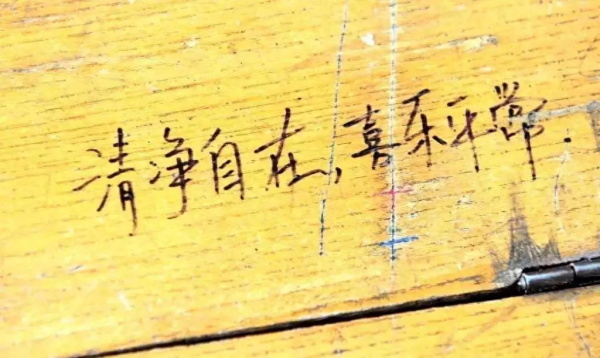 清净自在，喜乐平常.